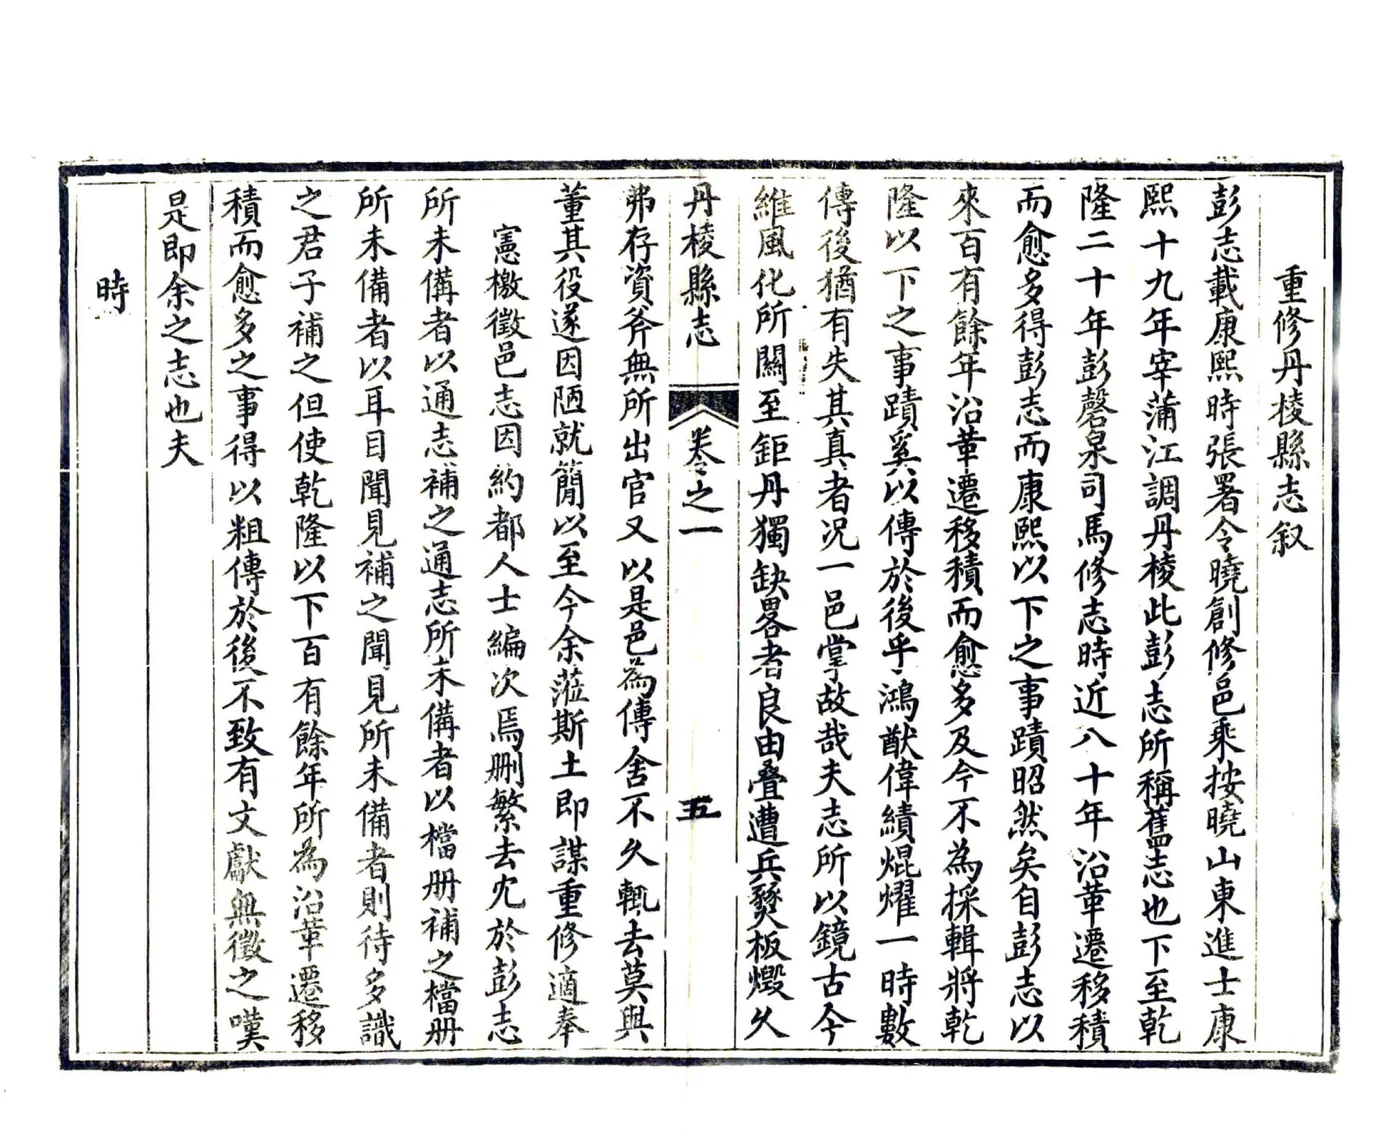 重修丹棱縣志叙
彭志載康熙時張署令曉創修邑乘按曉山東進士康
熙十九年宰蒲江調丹棱此彭志所稱舊志也下至乾
隆二十年彭磬泉司馬修志時近八十年沿革遷移積
而愈多得彭志而康熙以下之事蹟昭然矣自彭志以
來百有餘年沿革遷移積而愈多及今不為採輯將乾
隆以下之事蹟奚以傳於後乎鴻猷偉績焜燿一時數
傳後猶有失其真者况一邑掌故哉夫志所以鏡古今
維風化所關至鉅丹獨缺畧者良由叠遭兵燹板燬久
丹棱縣志 卷之一 五
弗存資斧無所出官又以是邑為傳舍不久輒去莫與
董其役遂因陋就簡以至今余蒞斯土即謀重修適奉
憲檄徵邑志因約都人士編次焉刪繁去冗於彭志
所未備者以通志補之通志所未備者以檔册補之檔册
所未備者以耳目聞見補之聞見所未備者則待多識
之君子補之但使乾隆以下百有餘年所為沿革遷移
積而愈多之事得以粗傳於後不致有文獻無徵之嘆
是即余之志也夫
時